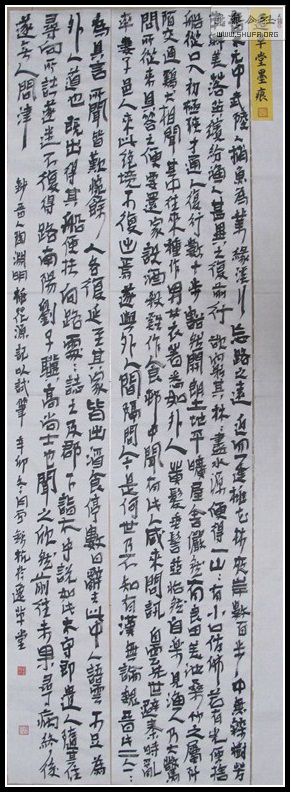 www.shufa.com
草堂墨痕
晉太元中武陵人捕魚為業緣溪行忘路之遠近忽逢桃花林夾岸數百步中無雜樹芳
草鮮美落英繽紛漁人甚異之復前行欲窮其林林盡水源便得一山山有小口仿佛若有光便捨
船從口入初極狹才通人復行數十步豁然開朗土地平曠屋舍儼然有良田美池桑竹之屬阡
陌交通鷄犬相聞其中往來種作男女衣著悉如外人黃髮垂髫並怡然自樂見漁人乃大驚
問所從來具答之便要還家設酒殺鷄作食村中聞有此人咸來問訊自雲先世避秦時亂
率妻子邑人來此絕境不復出焉遂與外人間隔問今是何世乃不知有漢無論魏晉此人一一
為具言所聞皆歎惋餘人各復延至其家皆出酒食停數日辭去此中人語雲不足為
外人道也既出得其船便扶向路處處誌之及郡下詣太守說如此太守即遣人隨其往
尋向所誌遂迷不復得路南陽劉子驥高尚士也聞之欣然前往未果尋病終後
遂無人問津
抄晉人陶淵明桃花源記以試筆辛卯冬日於草堂